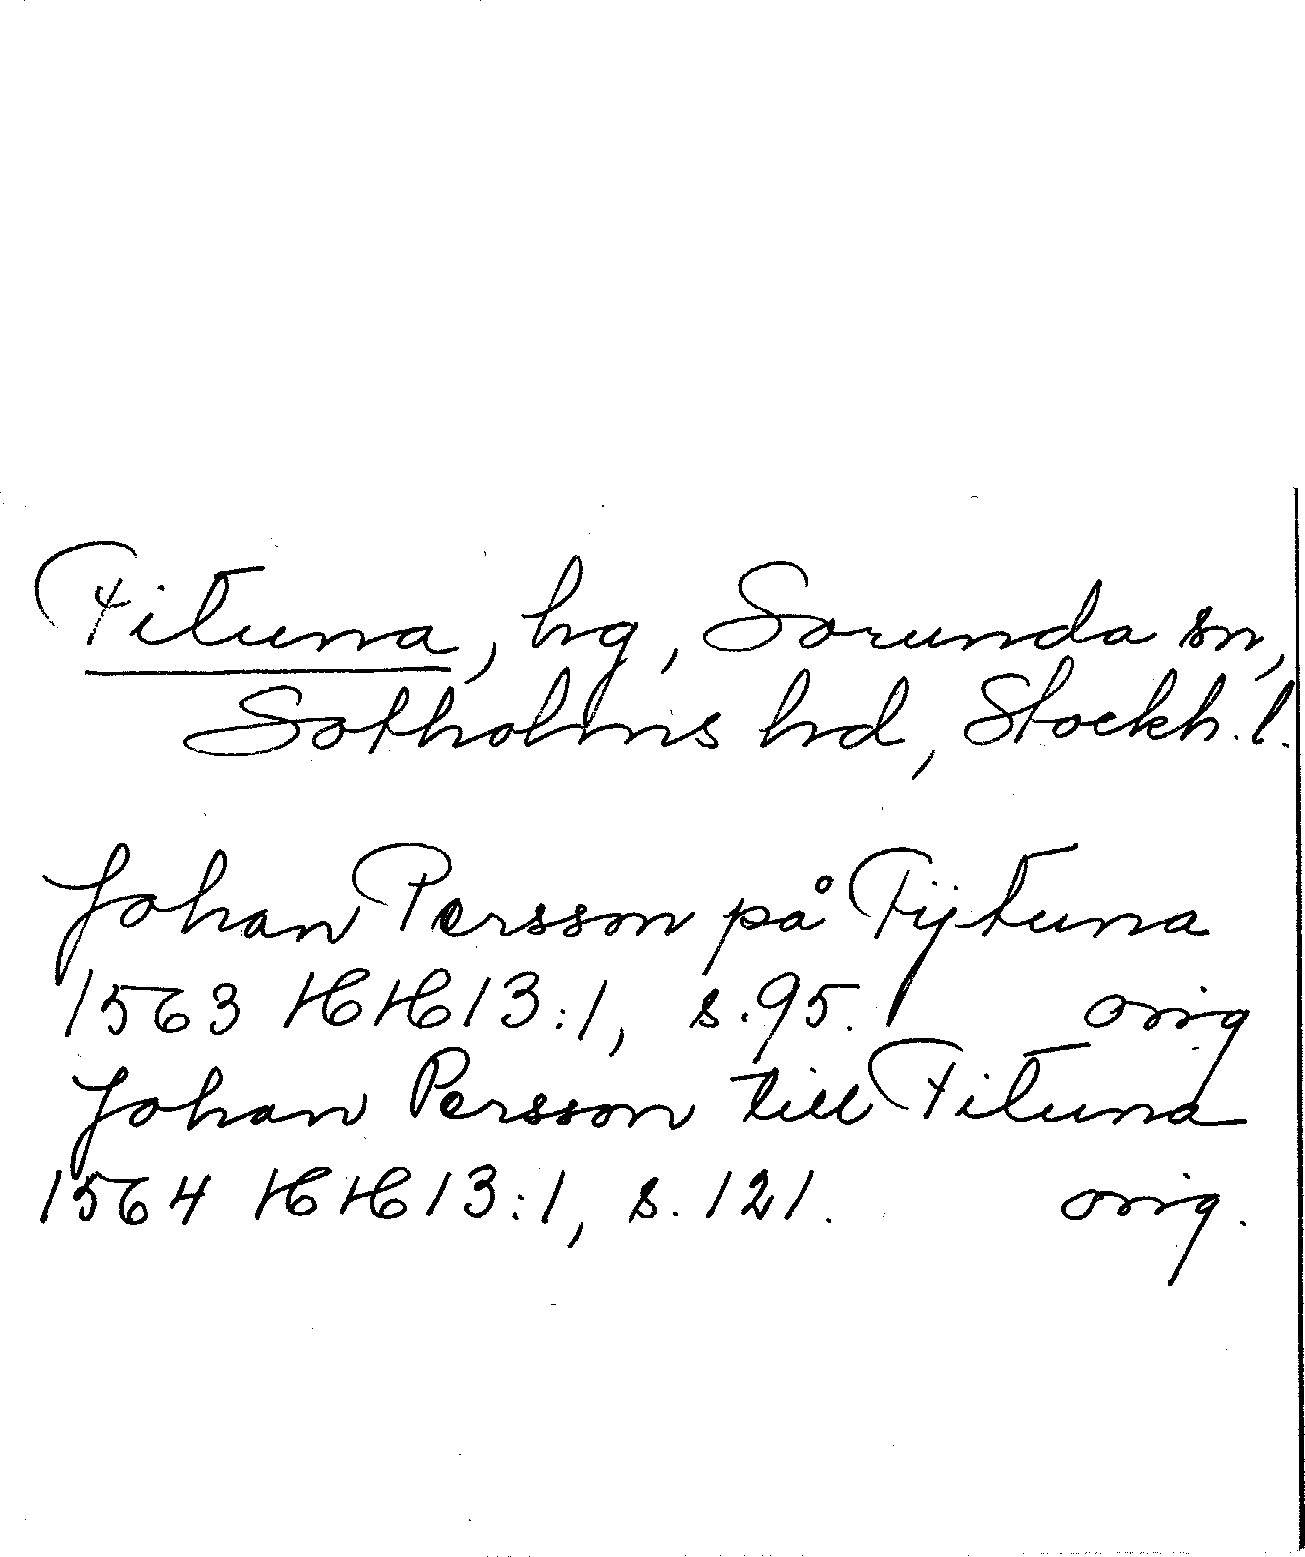 Fituna, hg, Sorunda sn,
Sotholms hd, Stockh. l.
Johan Persson på Fijtuna
1563 HH 13:1, s. 95. orig
Johan Persson till Fituna
1564 HH 13:1, s. 121. orig.